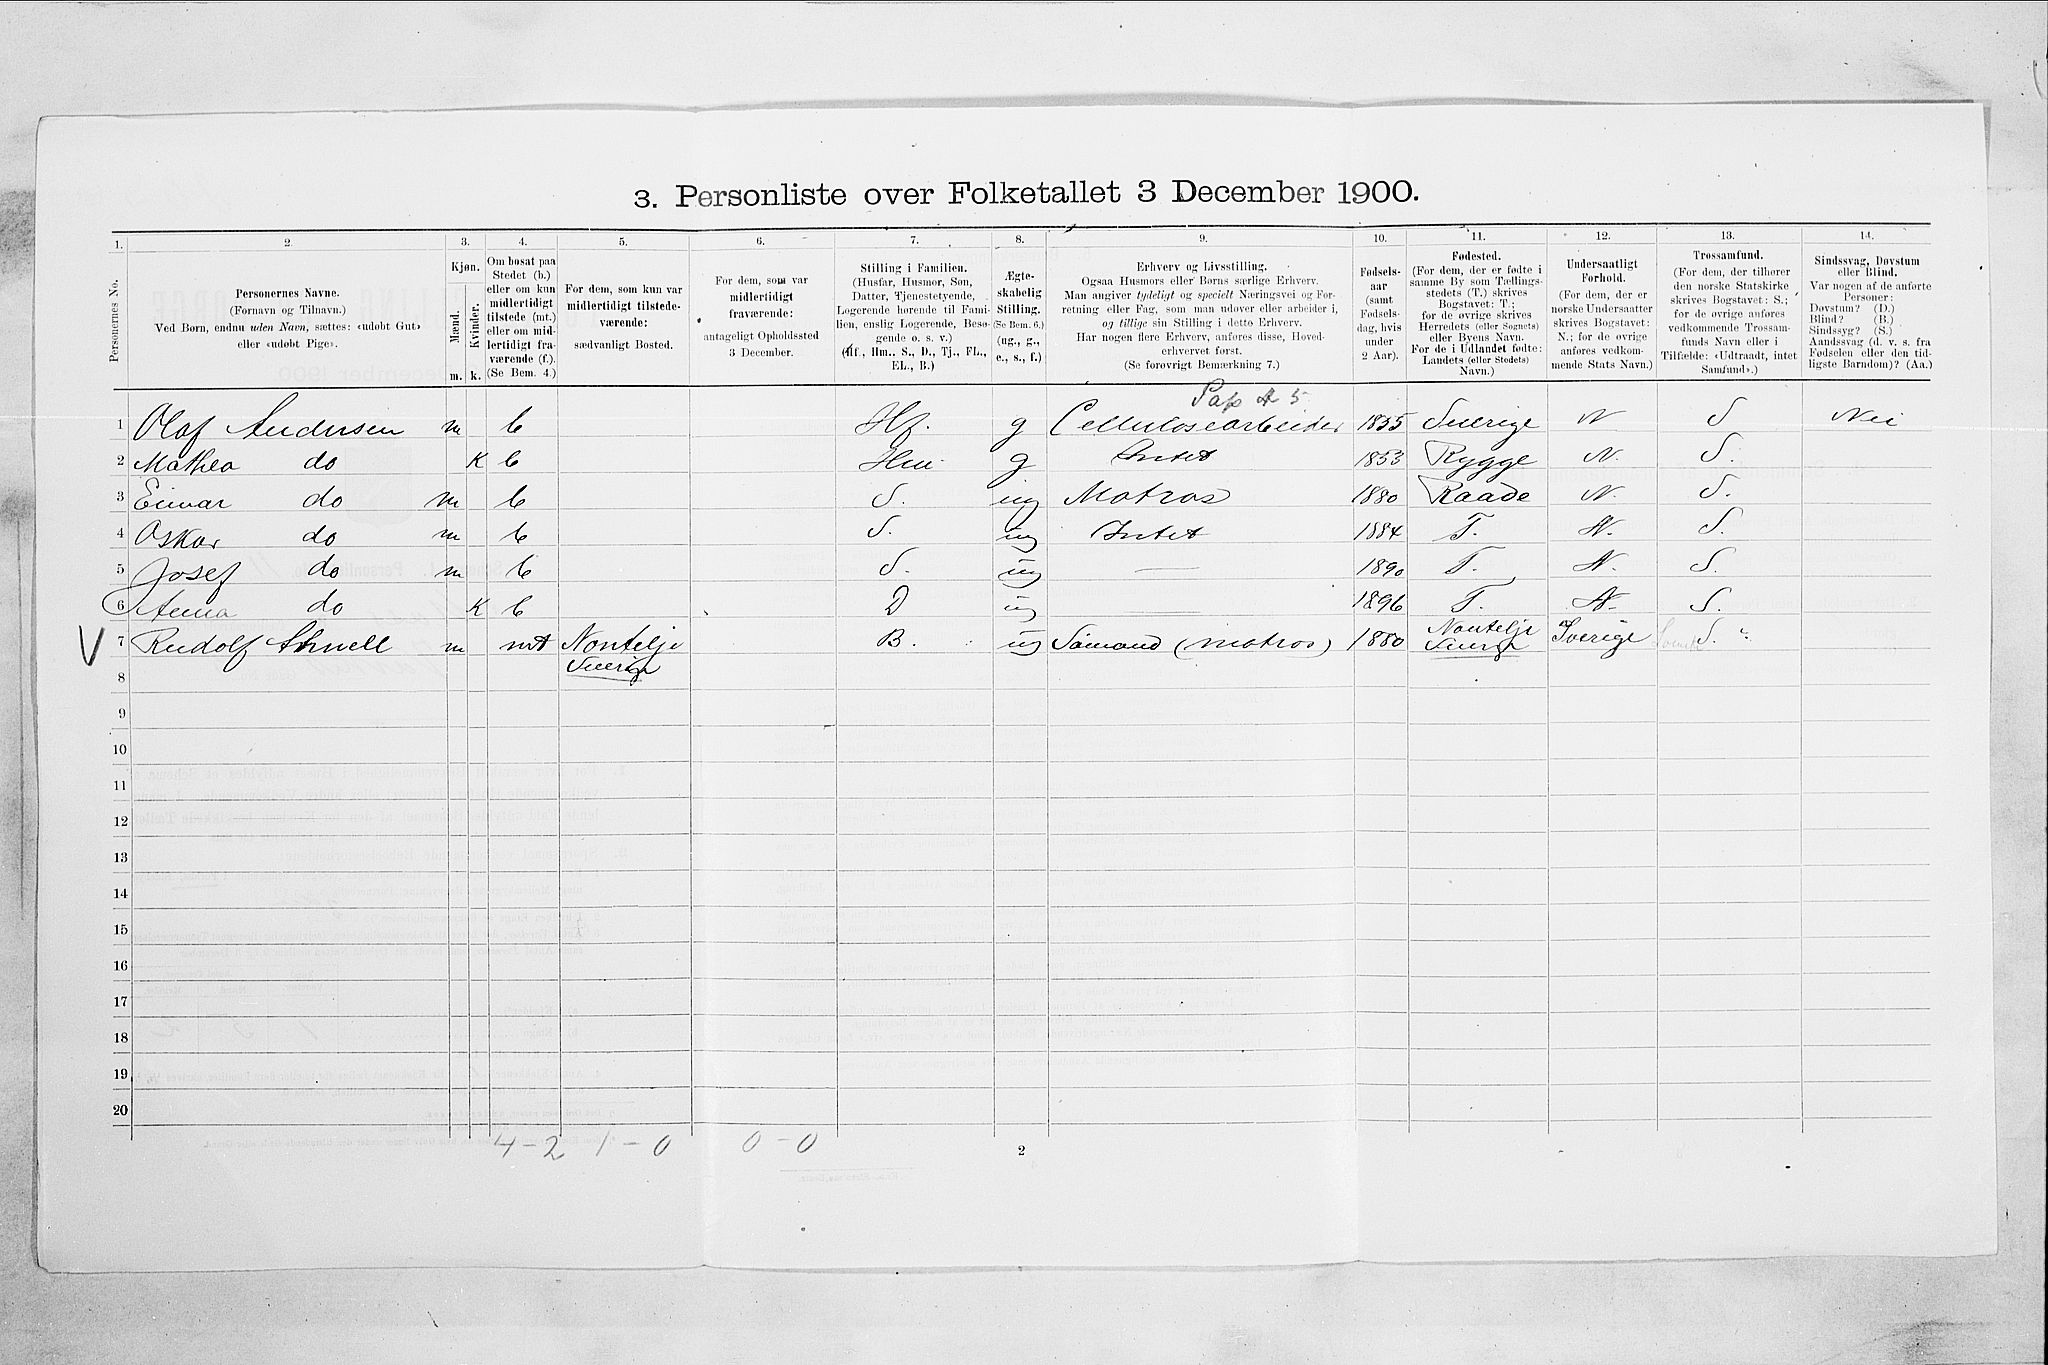 3. Personliste over Folketallet 3 December 1900.
1. 2. 3. 4. 5. 6. 7. 8. 9. 10. 11. 12. 13. 14.
Personernes No.
Personernes Navne.
(Fornavn og Tilnavn.)
Ved Børn, endnu uden Navn, sættes: «udøbt Gut»
eller «udøbt Pige».
Kjøn.
Mænd. Kvinder.
m. k.
Om bosat paa
Stedet (b.)
eller om kun
midlertidigt
tilstede (mt.)
eller om mid-
lertidigt fra-
værende (f.).
(Se Bem. 4.)
For dem, som kun var
midlertidigt tilstede-
værende:
sædvanligt Bosted.
For dem, som var
midlertidigt
fraværende:
antageligt Opholdssted
3 December.
Stilling i Familien.
(Husfar, Husmor, Søn,
Datter, Tjenestetyende,
Logerende hørende til Fami-
lien, enslig Logerende, Besø-
gende o. s. v.)
(Hf., Hm., S., D., Tj., FL.,
EL., B.)
Ægte-
skabelig
Stilling.
(Se Bem. 6.)
(ug., g.,
e., s., f.)
Erhverv og Livsstilling.
Ogsaa Husmors eller Børns særlige Erhverv.
Man angiver tydeligt og specielt Næringsvei og For-
retning eller Fag, som man udøver eller arbeider i,
og tillige sin Stilling i dette Erhverv.
Har nogen flere Erhverv, anføres disse, Hoved-
erhvervet først.
(Se forøvrigt Bemærkning 7.)
Fødsels-
aar
(samt
Fødsels-
dag, hvis
under
2 Aar).
Fødested.
(For dem, der er fødte i
samme By som Tællings-
stedets (T.) skrives
Bogstavet: T.;
for de øvrige skrives
Herredets (eller Sognets)
eller Byens Navn.
For de i Udlandet fødte:
Landets (eller Stedets)
Navn.)
Undersaatligt
Forhold.
(For dem, der er
norske Undersaatter
skrives Bogstavet:
N.; for de øvrige
anføres vedkom-
mende Stats Navn.)
Trossamfund.
(For dem, der tilhører
den norske Statskirke
skrives Bogstavet: S.;
for de øvrige anføres
vedkommende Trossam-
funds Navn eller i
Tilfælde: «Udtraadt, intet
Samfund».)
Sindssvag, Døvstum
eller Blind.
Var nogen af de anførte
Personer:
Døvstum? (D.)
Blind? (B.)
Sindssyg? (S.)
Aandssvag (d. v. s. fra
Fødselen eller den tid-
ligste Barndom)? (Aa.)
Pap A 5
1 Olaf Andersen m b Hf. g Cellulosearbeider 1855 Sverige N S Nei
2 Mathea do K b Hm g Intet 1853 Rygge N. S.
3 Einar do m b S. ug Matros 1880 Raade N. S.
4 Oskar do m b S. ug Intet 1884 T. N. S.
5 Josef do m b S. ug — 1890 T. N. S.
6 Anna do K b D ug — 1896 T. N. S.
V 7 Rudolf m mt Nontelje B. ug Sømand (matros) 1880 Nontelje Sverige S.
8 Sverige Sverige
9
10
11
12
13
14
15
16
17
18
19
20
4-2 1-0 0-0
2